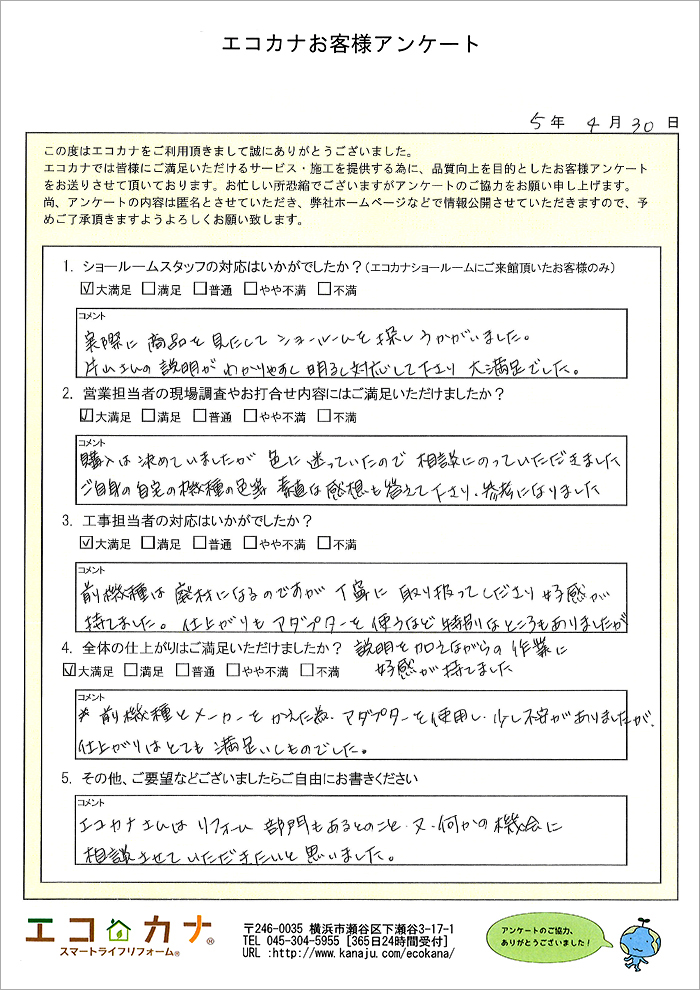 エコカナお客様アンケート
5年 4月 30日
この度はエコカナをご利用頂きまして誠にありがとうございました。
エコカナでは皆様にご満足いただけるサービス・施工を提供する為に、品質向上を目的としたお客様アンケート
をお送りさせて頂いております。お忙しい所恐縮でございますがアンケートのご協力をお願い申し上げます。
尚、アンケートの内容は匿名とさせていただき、弊社ホームページなどで情報公開させていただきますので、予
めご了承頂きますようよろしくお願い致します。
1. ショールームスタッフの対応はいかがでしたか？(エコカナショールームにご来館頂いたお客様のみ)
☑大満足 □満足 □普通 □やや不満 □不満
コメント
実際に商品を見たくして ショールームを探しうかがいました。
片山さんの説明がわかりやすく明るく対応して下さり 大満足でした。
2. 営業担当者の現場調査やお打合せ内容にはご満足いただけましたか？
☑大満足 □満足 □普通 □やや不満 □不満
コメント
購入は決めていましたが 色に迷っていたので 相談にのっていただきました
ご自身の自宅の機種の色等 素直な感想も答えて下さり、参考になりました
3. 工事担当者の対応はいかがでしたか？
☑大満足 □満足 □普通 □やや不満 □不満
コメント
前機種は廃材になるのですが 丁寧に 取り扱ってくださり 好感が
持てました。仕上がりも アダプターを使うなど 特別なところもありましたが
4. 全体の仕上がりはご満足いただけましたか？ 説明を加えながらの作業に
☑大満足 □満足 □普通 □やや不満 □不満 好感が持てました
コメント
* 前機種とメーカーをかえた為、アダプターを使用し、少し不安がありましたが、
仕上がりはとても満足いくものでした。
5. その他、ご要望などございましたらご自由にお書きください
コメント
エコカナさんは リフォーム部門もあるとのこと、又、何かの機会に
相談させていただきたいと思いました。
エコカナ®
スマートライフリフォーム®
〒246-0035 横浜市瀬谷区下瀬谷3-17-1
TEL 045-304-5955 [365日24時間受付]
URL :http://www.kanaju.com/ecokana/
アンケートのご協力、
ありがとうございました！